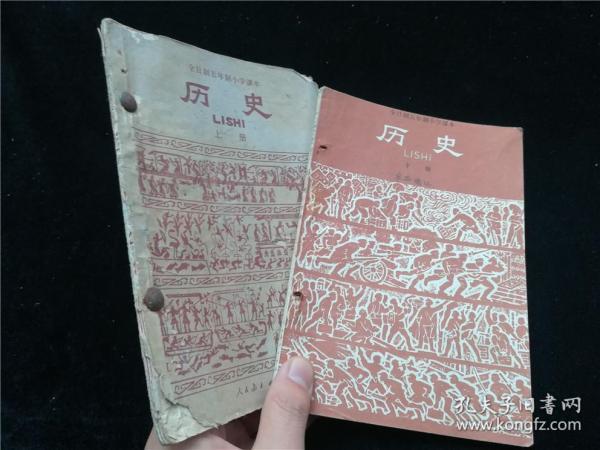 全日制五年制小学课本
历史
LISHI
上册
人民教育
全日制五年制小学课本
历史
LISHI
下册
孔夫子旧书网
www.kongfz.com